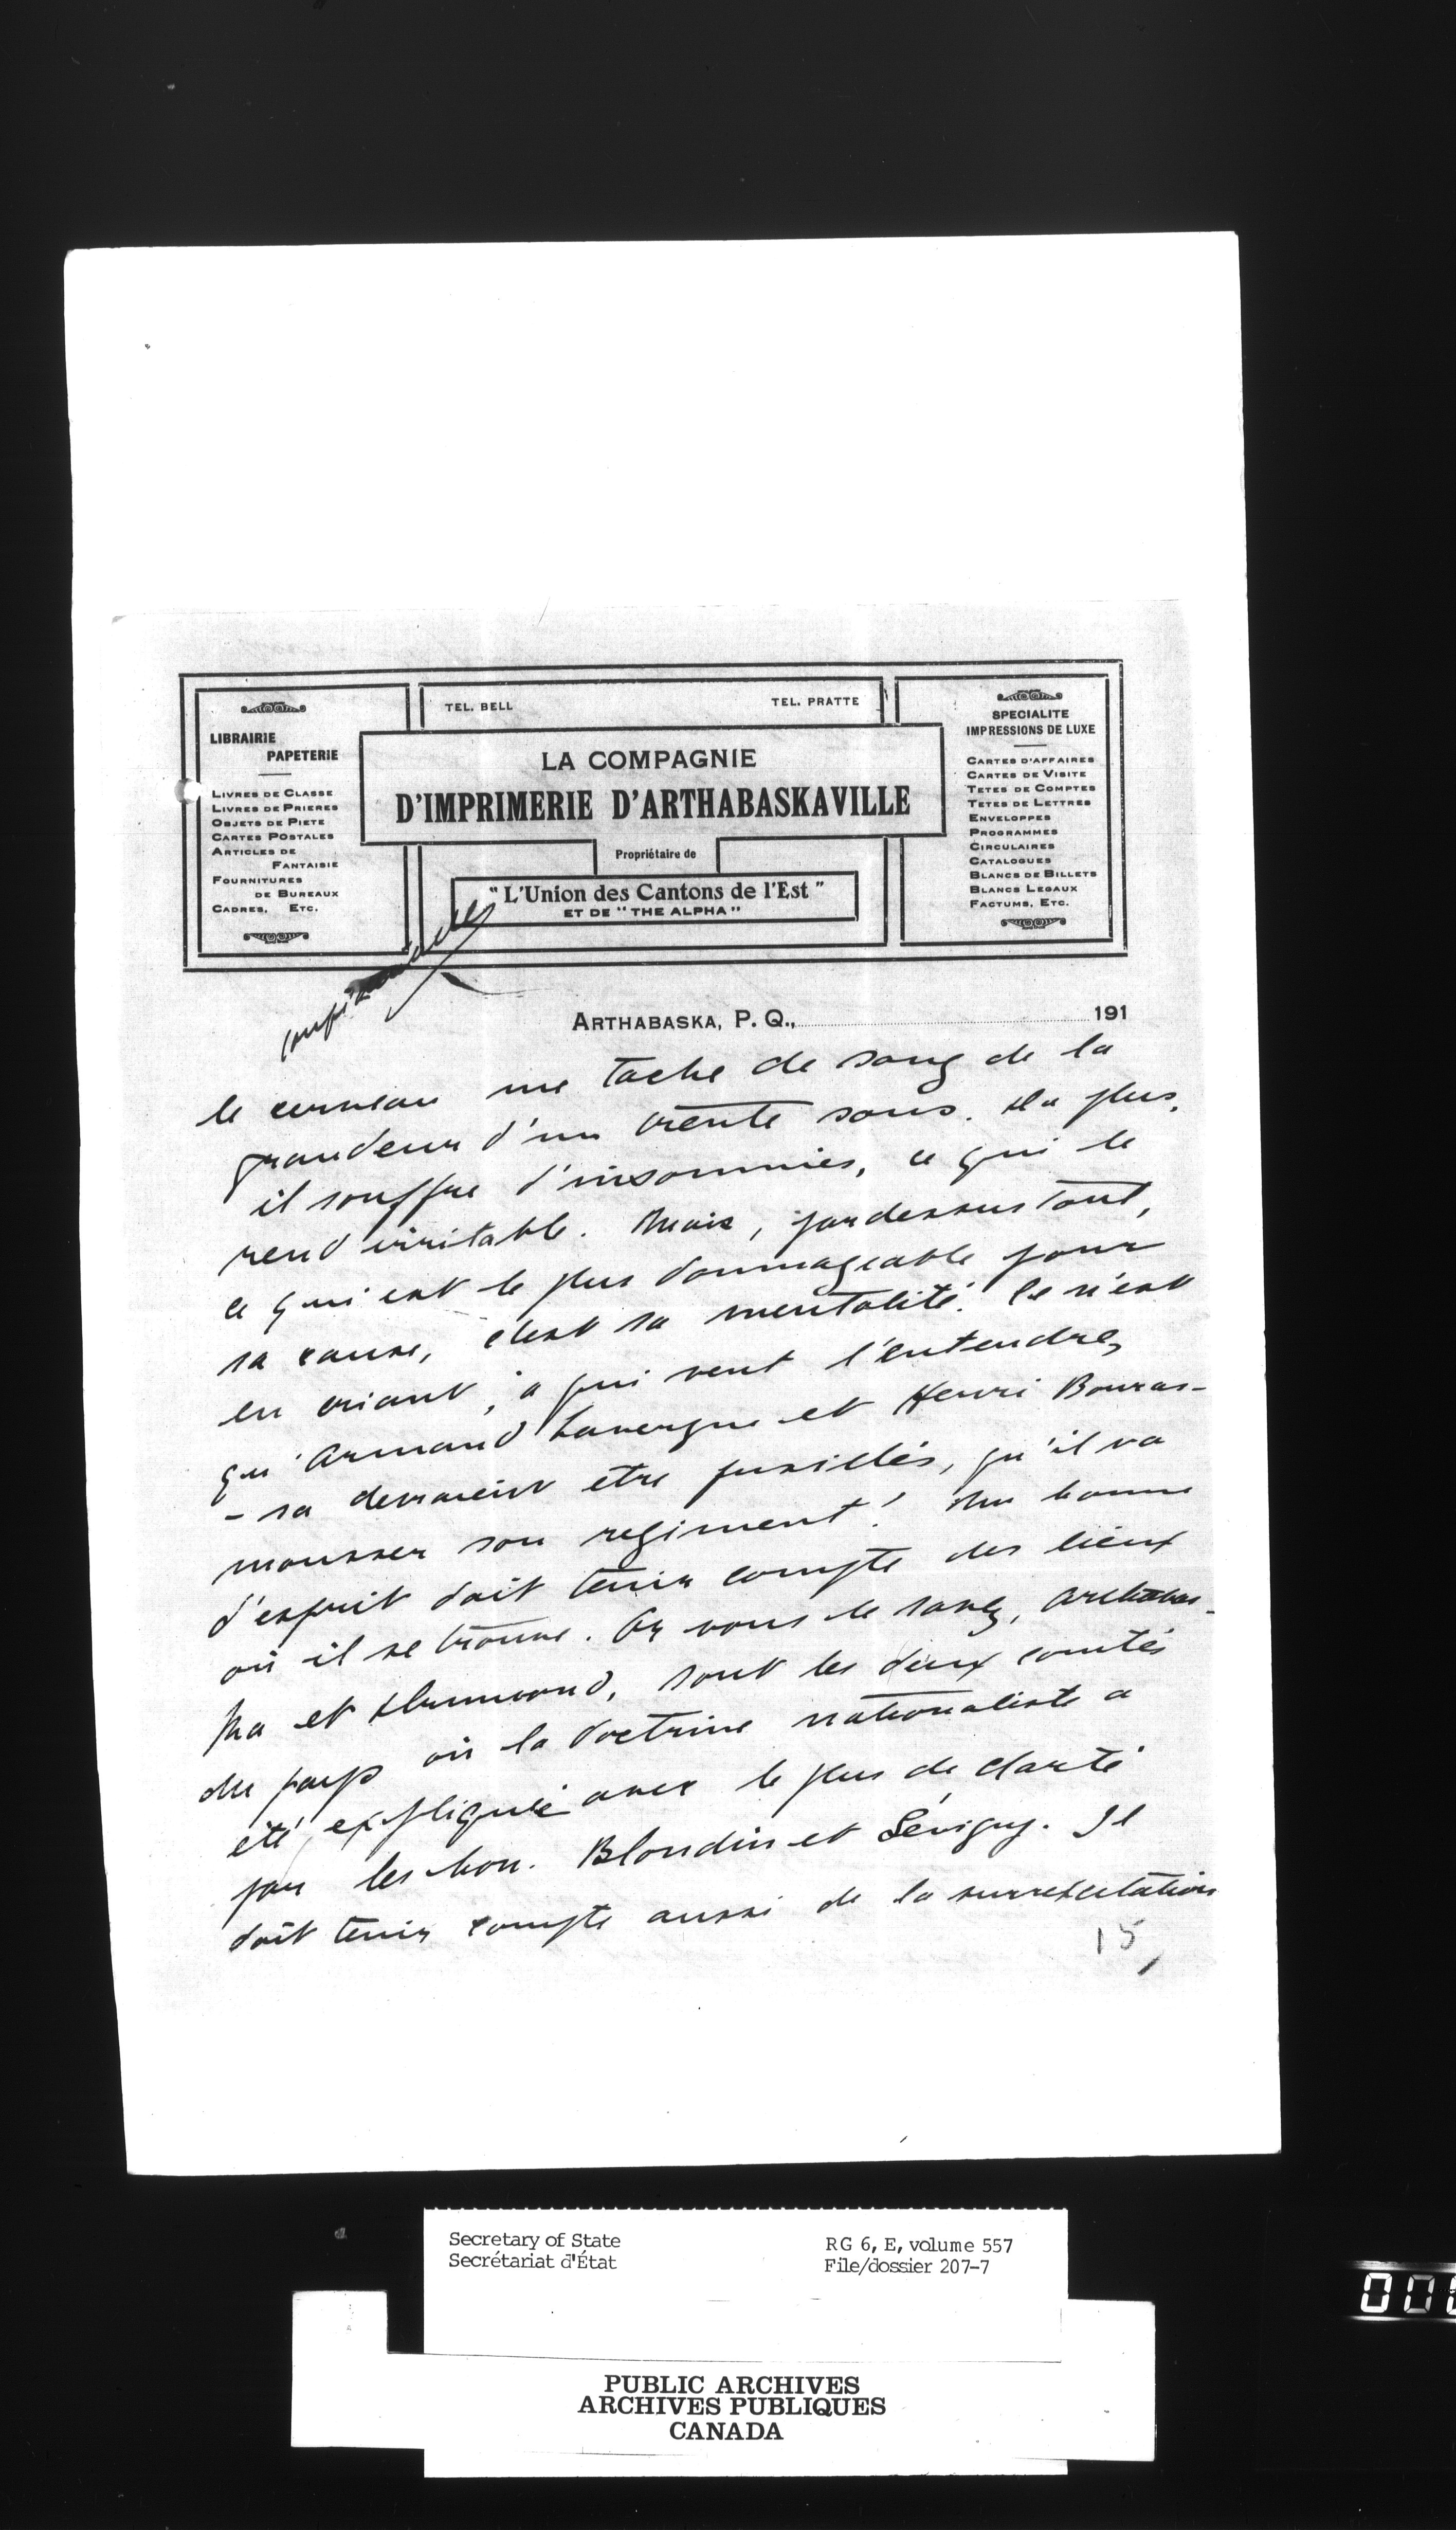 TEL. BELL
TEL. PRATTE
LIBRAIRIE
PAPETERIE
LIVRES DE CLASSE
LIVRES DE PRIERES
OBJETS DE PIETE
CARTES POSTALES
ARTICLES DE
FANTAISIE
FOURNITURES
DE BUREAUX
CADRES, ETC.
LA COMPAGNIE
D'IMPRIMERIE D'ARTHABASKAVILLE
Propriétaire de
"L'Union des Cantons de l'Est"
ET DE "THE ALPHA"
SPECIALITE
IMPRESSIONS DE LUXE
CARTES D'AFFAIRES
CARTES DE VISITE
TETES DE COMPTES
TETES DE LETTRES
ENVELOPPES
PROGRAMMES
CIRCULAIRES
CATALOGUES
BLANCS DE BILLETS
BLANCS LEGAUX
FACTUMS, ETC.
ARTHABASKA, P. Q., 191
le cerveau une tache de sang de la
grandeur d'un trente sous. De plus,
il souffre d'insomnies, ce qui le
rend irritable. Mais, pardessus tout,
ce qui est le plus dommageable pour
sa cause, c'est sa mentalité. Ce n'est
en criant, à qui veut l'entendre,
qu'Armand Lavergne et Henri Bouras-
-sa devraient etre fusillés, qu'il va
mousser son regiment! Un homme
d'esprit doit tenir compte des lieux
où il se trouve. Or vous le savez, Arthabas-
ka et Drummond, sont les deux comtés
du pays où la doctrine nationaliste a
été expliquée avec le plus de clarté
par les hon. Blondin et Sévigny. Il
doit tenir compte aussi de la surrexcitation
15
Secretary of State
Secrétariat d'État
RG 6, E, volume 557
File/dossier 207-7
PUBLIC ARCHIVES
ARCHIVES PUBLIQUES
CANADA
000